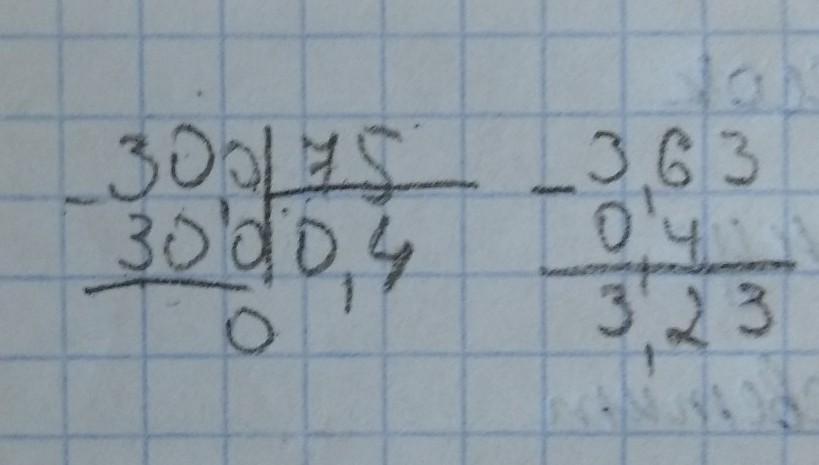 300 75
- 300 0,4
0
- 3,63
0,4
3,23